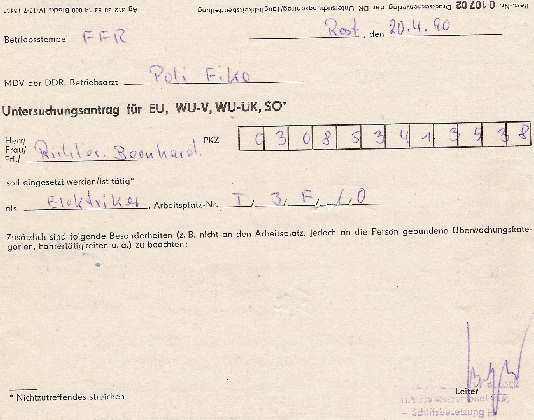 Ost., den 20.4.90
Betriebsstempel FFR
MDV der DDR, Betriebsarzt Poli Fiko
Untersuchungsantrag für EU, WU-V, WU-UK, SO*
Herr/
Frau/ Richter, Bernhard PKZ 0 3 0 8 5 3 4 1 3 5 3 8
Frl./
soll eingesetzt werden/ist tätig*
als Elektriker, Arbeitsplatz-Nr. I, 3, F, 1, 0
Zusätzlich sind folgende Besonderheiten (z. B. nicht an den Arbeitsplatz, jedoch an die Person gebundene Überwachungskate-
gorien, Fahrertätigkeiten u. a.) zu beachten:
Leiter
* Nichtzutreffendes streichen